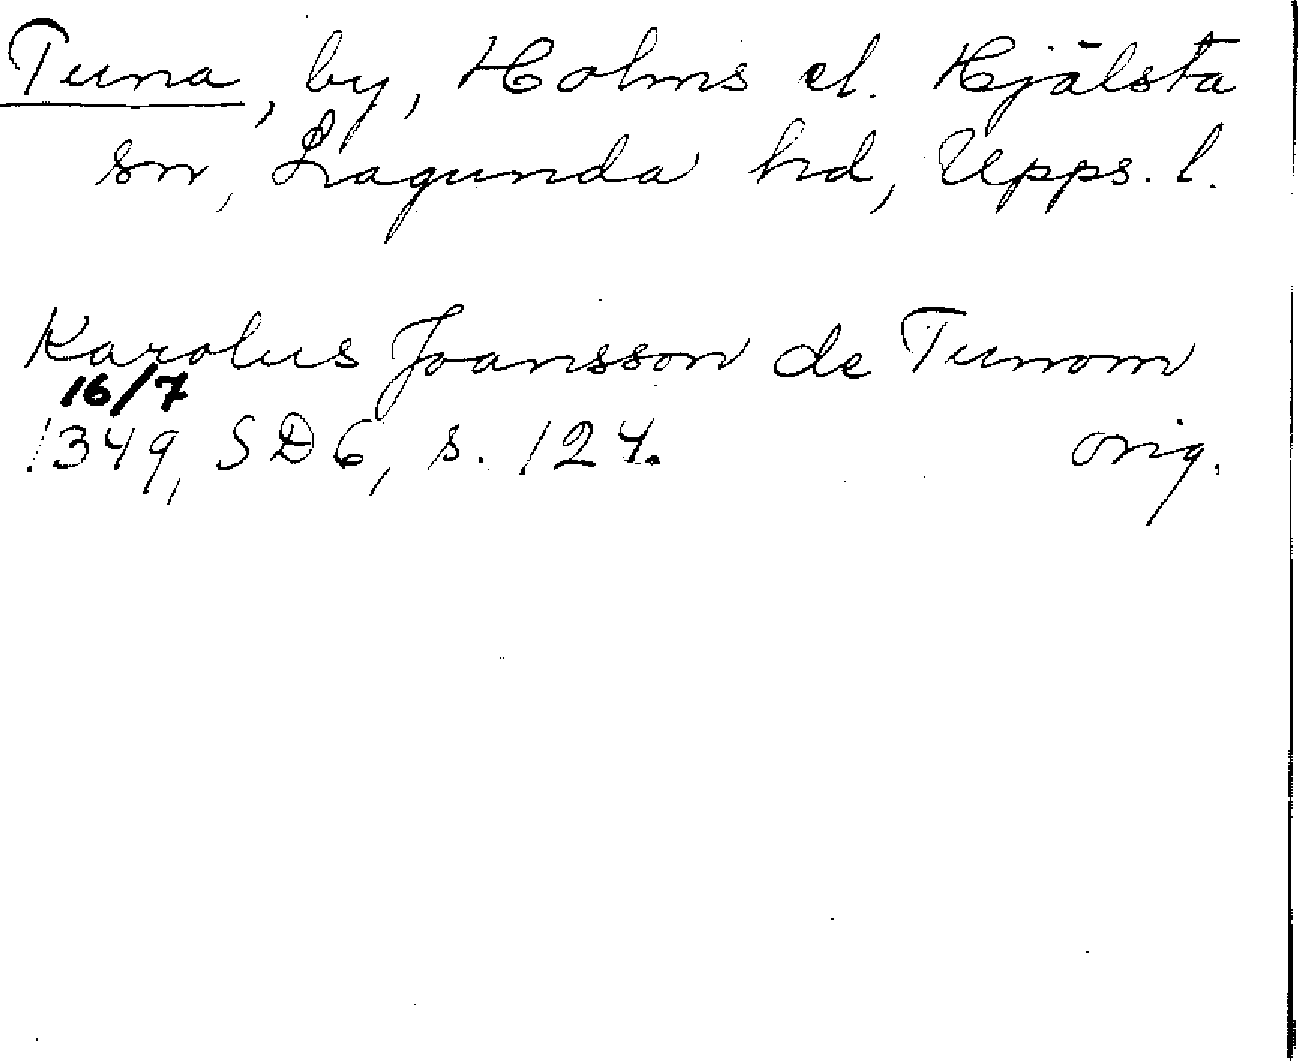 Tuna, by, Holms el. Hjälsta
sn, Lagunda hd, Upps. l.
Karolus Joansson de Tunom
16/7
1349, SD 6, s. 124. orig.